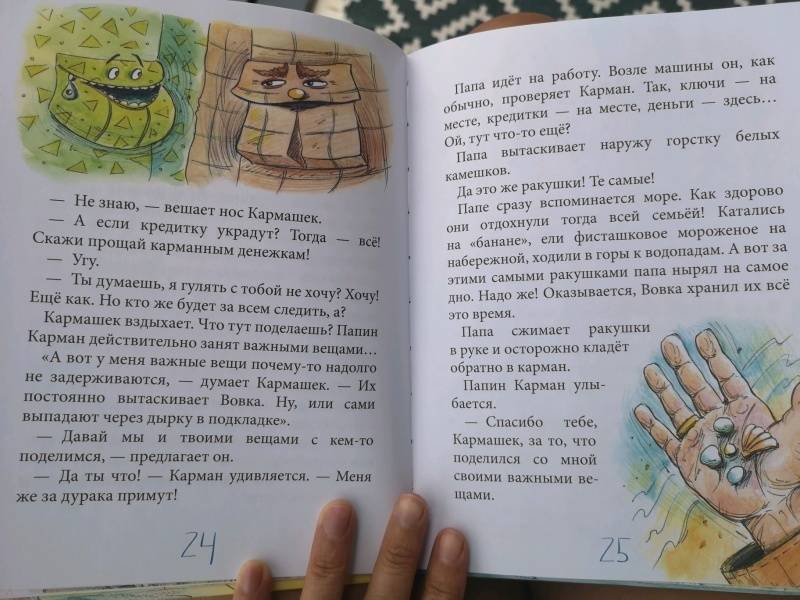 — Не знаю, — вешает нос Кармашек.
— А если кредитку украдут? Тогда — всё!
Скажи прощай карманным денежкам!
— Угу.
— Ты думаешь, я гулять с тобой не хочу? Хочу!
Ещё как. Но кто же будет за всем следить, а?
Кармашек вздыхает. Что тут поделаешь? Папин
Карман действительно занят важными вещами…
«А вот у меня важные вещи почему-то надолго
не задерживаются, — думает Кармашек. — Их
постоянно вытаскивает Вовка. Ну, или сами
выпадают через дырку в подкладке».
— Давай мы и твоими вещами с кем-то
поделимся, — предлагает он.
— Да ты что! — Карман удивляется. — Меня
же за дурака примут!
24
Папа идёт на работу. Возле машины он, как
обычно, проверяет Карман. Так, ключи — на
месте, кредитки — на месте, деньги — здесь…
Ой, тут что-то ещё?
Папа вытаскивает наружу горстку белых
камешков.
Да это же ракушки! Те самые!
Папе сразу вспоминается море. Как здорово
они отдохнули тогда всей семьёй! Катались
на «банане», ели фисташковое мороженое на
набережной, ходили в горы к водопадам. А вот за
этими самыми ракушками папа нырял на самое
дно. Надо же! Оказывается, Вовка хранил их всё
это время.
Папа сжимает ракушки
в руке и осторожно кладёт
обратно в карман.
Папин Карман улы-
бается.
— Спасибо тебе,
Кармашек, за то, что
поделился со мной
своими важными ве-
щами.
25